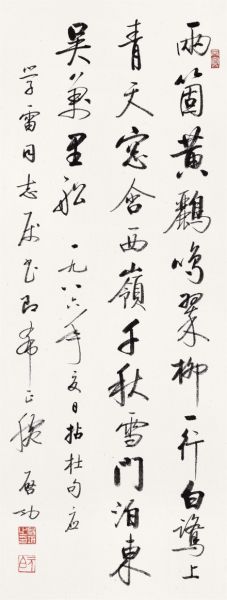 兩箇黃鸝鳴翠柳一行白鷺上
青天窓含西嶺千秋雪門泊東
吴萬里船 一九八六年夏日拈杜句应
学雷同志属书即希正腕 启功